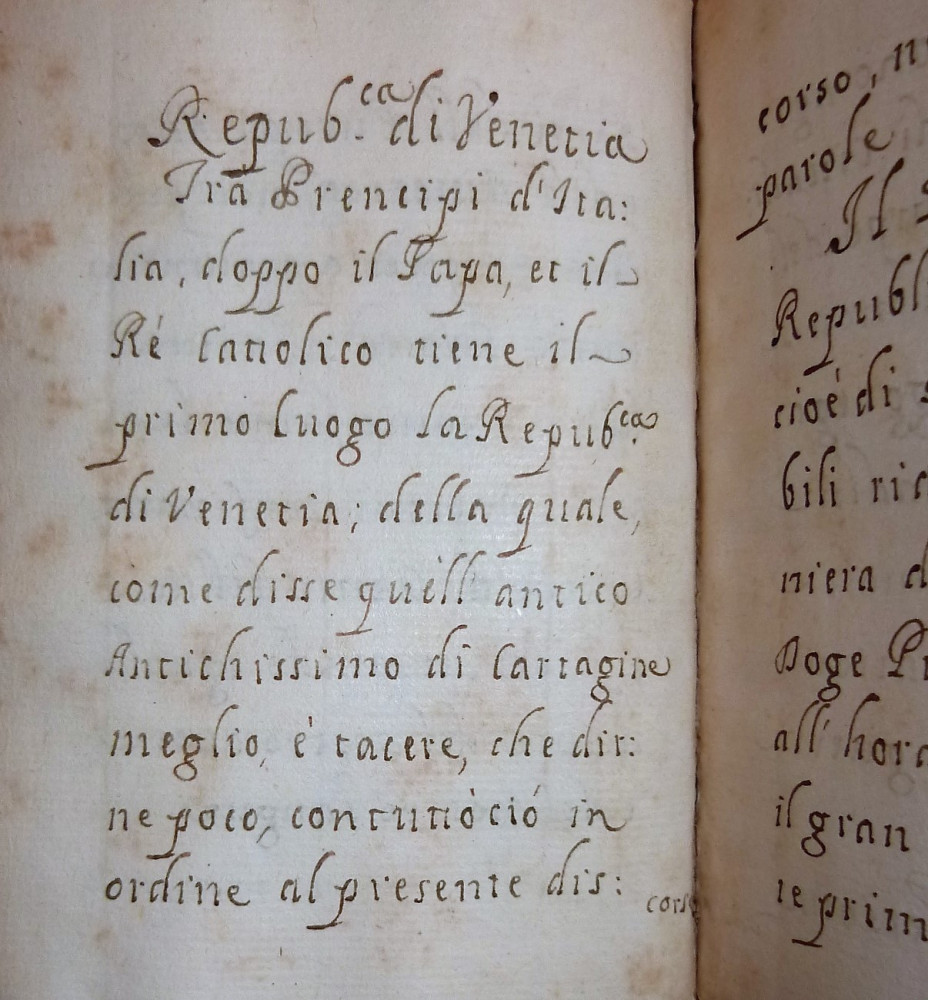 Repub.ca di Venetia
Trà Prencipi d'Ita:
lia, doppo il Papa, et il
Ré Cattolico tiene il
primo luogo la Repub.ca
di Venetia; della quale,
come disse quell'antico
Antichissimo di Cartagine
meglio, è tacere, che dir:
ne poco, con tuttò ció in
ordine al presente dis:
corso
corso, n
parole
Il
Republ
cioè di s
bili ric
niera d
Doge Pr
all'hora
il gran
te prim